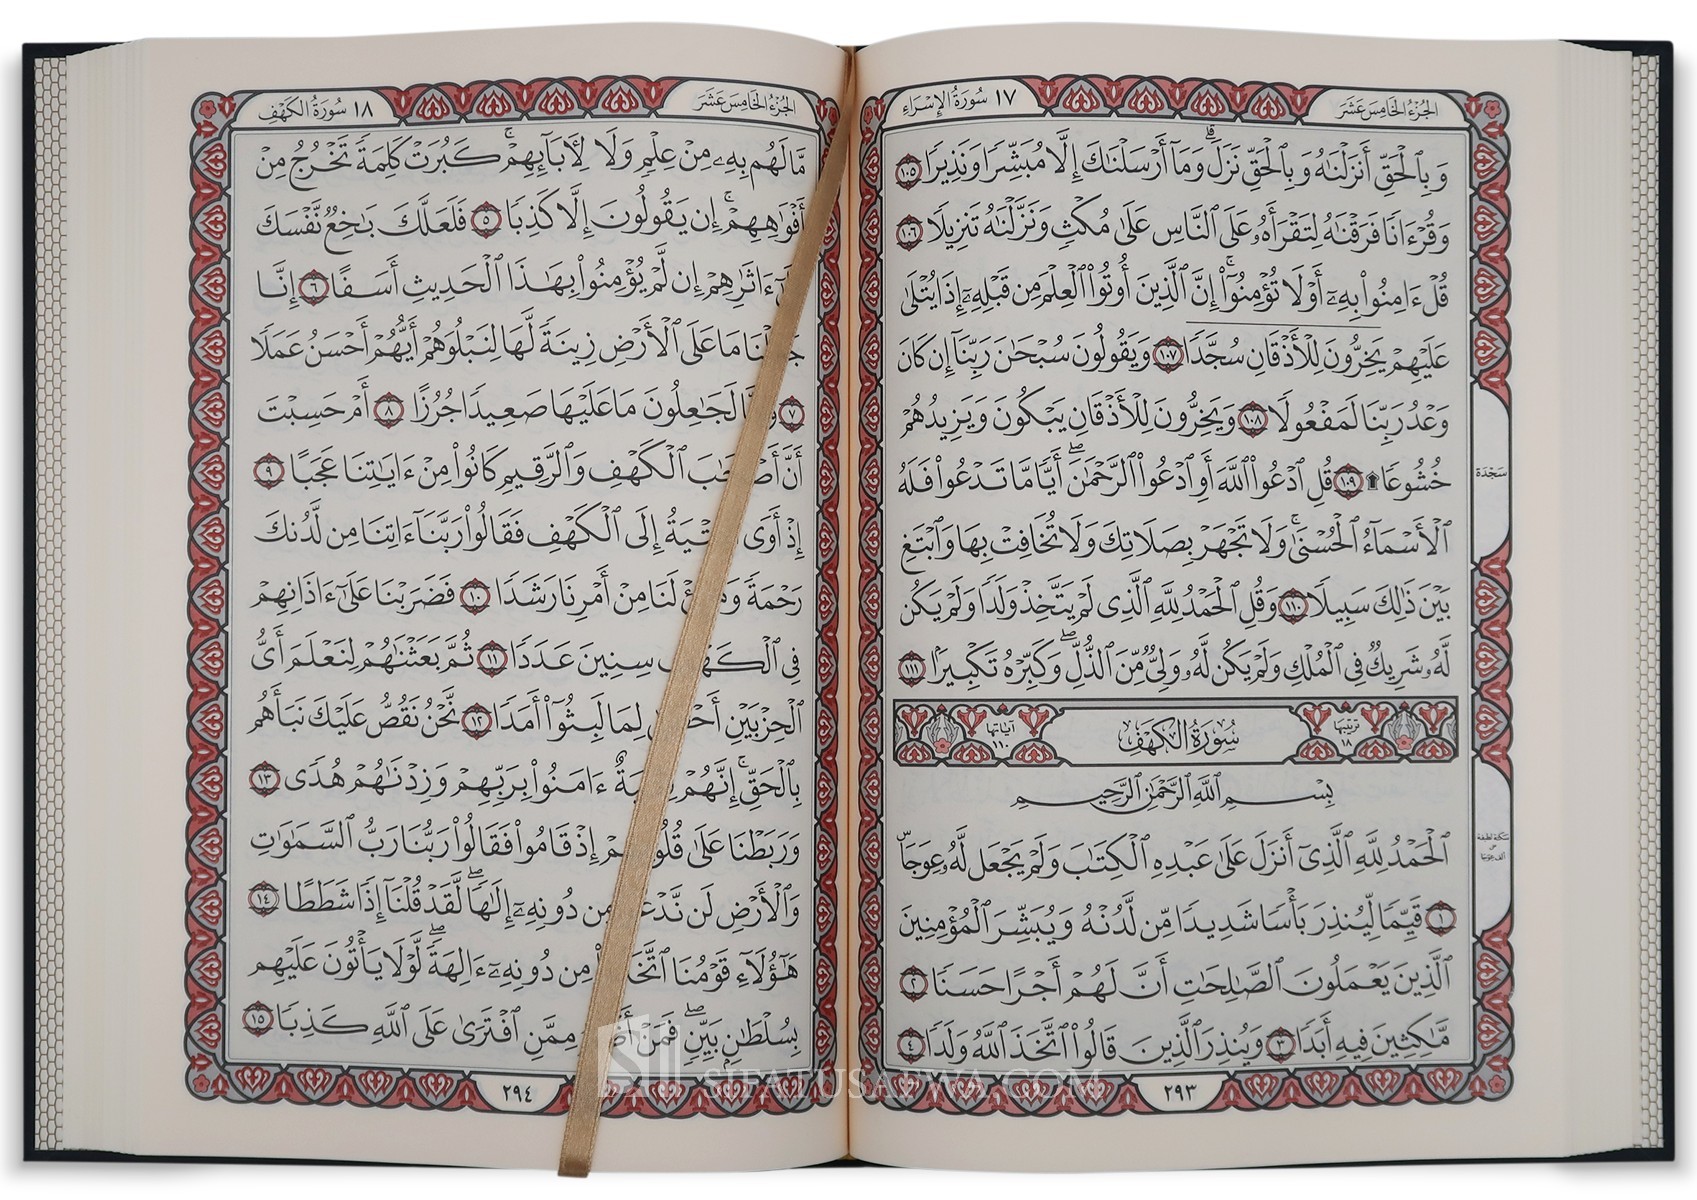 الجُزْءُ الخَامِسَ عَشَرَ
١٧ سُورَةُ الإِسْرَاءِ
وَبِٱلْحَقِّ أَنزَلْنَٰهُ وَبِٱلْحَقِّ نَزَلَ ۗ وَمَآ أَرْسَلْنَٰكَ إِلَّا مُبَشِّرًا وَنَذِيرًا ١٠٥
وَقُرْءَانًا فَرَقْنَٰهُ لِتَقْرَأَهُۥ عَلَى ٱلنَّاسِ عَلَىٰ مُكْثٍ وَنَزَّلْنَٰهُ تَنزِيلًا ١٠٦
قُلْ ءَامِنُوا۟ بِهِۦٓ أَوْ لَا تُؤْمِنُوٓا۟ ۚ إِنَّ ٱلَّذِينَ أُوتُوا۟ ٱلْعِلْمَ مِن قَبْلِهِۦٓ إِذَا يُتْلَىٰ
عَلَيْهِمْ يَخِرُّونَ لِلْأَذْقَانِ سُجَّدًا ١٠٧ وَيَقُولُونَ سُبْحَٰنَ رَبِّنَآ إِن كَانَ
وَعْدُ رَبِّنَا لَمَفْعُولًا ١٠٨ وَيَخِرُّونَ لِلْأَذْقَانِ يَبْكُونَ وَيَزِيدُهُمْ
خُشُوعًا ۩ ١٠٩ قُلِ ٱدْعُوا۟ ٱللَّهَ أَوِ ٱدْعُوا۟ ٱلرَّحْمَٰنَ ۖ أَيًّا مَّا تَدْعُوا۟ فَلَهُ
سَجْدَة
ٱلْأَسْمَآءُ ٱلْحُسْنَىٰ ۚ وَلَا تَجْهَرْ بِصَلَاتِكَ وَلَا تُخَافِتْ بِهَا وَٱبْتَغِ
بَيْنَ ذَٰلِكَ سَبِيلًا ١١٠ وَقُلِ ٱلْحَمْدُ لِلَّهِ ٱلَّذِى لَمْ يَتَّخِذْ وَلَدًا وَلَمْ يَكُن
لَّهُۥ شَرِيكٌ فِى ٱلْمُلْكِ وَلَمْ يَكُن لَّهُۥ وَلِىٌّ مِّنَ ٱلذُّلِّ ۖ وَكَبِّرْهُ تَكْبِيرًۢا ١١١
ترتيبها ١٨
سُورَةُ الكَهْفِ
آياتها ١١٠
بِسْمِ ٱللَّهِ ٱلرَّحْمَٰنِ ٱلرَّحِيمِ
ٱلْحَمْدُ لِلَّهِ ٱلَّذِىٓ أَنزَلَ عَلَىٰ عَبْدِهِ ٱلْكِتَٰبَ وَلَمْ يَجْعَل لَّهُۥ عِوَجَاۜ
سكتة لطيفة
على
ألف عِوَجَا
١ قَيِّمًا لِّيُنذِرَ بَأْسًا شَدِيدًا مِّن لَّدُنْهُ وَيُبَشِّرَ ٱلْمُؤْمِنِينَ
ٱلَّذِينَ يَعْمَلُونَ ٱلصَّٰلِحَٰتِ أَنَّ لَهُمْ أَجْرًا حَسَنًا ٢
مَّٰكِثِينَ فِيهِ أَبَدًا ٣ وَيُنذِرَ ٱلَّذِينَ قَالُوا۟ ٱتَّخَذَ ٱللَّهُ وَلَدًا ٤
٢٩٣
الجُزْءُ الخَامِسَ عَشَرَ
١٨ سُورَةُ الكَهْفِ
مَّا لَهُم بِهِۦ مِنْ عِلْمٍ وَلَا لِأٓبَآئِهِمْ ۚ كَبُرَتْ كَلِمَةً تَخْرُجُ مِنْ
أَفْوَٰهِهِمْ ۚ إِن يَقُولُونَ إِلَّا كَذِبًا ٥ فَلَعَلَّكَ بَٰخِعٌ نَّفْسَكَ
ءَاثَٰرِهِمْ إِن لَّمْ يُؤْمِنُوا۟ بِهَٰذَا ٱلْحَدِيثِ أَسَفًا ٦ إِنَّا
مَا عَلَى ٱلْأَرْضِ زِينَةً لَّهَا لِنَبْلُوَهُمْ أَيُّهُمْ أَحْسَنُ عَمَلًا
٧ لَجَٰعِلُونَ مَا عَلَيْهَا صَعِيدًا جُرُزًا ٨ أَمْ حَسِبْتَ
أَنَّ ٱلْكَهْفِ وَٱلرَّقِيمِ كَانُوا۟ مِنْ ءَايَٰتِنَا عَجَبًا ٩
إِذْ أَوَى إِلَى ٱلْكَهْفِ فَقَالُوا۟ رَبَّنَآ ءَاتِنَا مِن لَّدُنكَ
رَحْمَةً لَنَا مِنْ أَمْرِنَا رَشَدًا ١٠ فَضَرَبْنَا عَلَىٰٓ ءَاذَانِهِمْ
فِى سِنِينَ عَدَدًا ١١ ثُمَّ بَعَثْنَٰهُمْ لِنَعْلَمَ أَىُّ
ٱلْحِزْبَيْنِ لِمَا لَبِثُوٓا۟ أَمَدًا ١٢ نَّحْنُ نَقُصُّ عَلَيْكَ نَبَأَهُم
بِٱلْحَقِّ ۚ إِنَّهُمْ ءَامَنُوا۟ بِرَبِّهِمْ وَزِدْنَٰهُمْ هُدًى ١٣
وَرَبَطْنَا عَلَىٰ إِذْ قَامُوا۟ فَقَالُوا۟ رَبُّنَا رَبُّ ٱلسَّمَٰوَٰتِ
وَٱلْأَرْضِ لَن مِن دُونِهِۦٓ إِلَٰهًا ۖ لَّقَدْ قُلْنَآ إِذًا شَطَطًا ١٤
هَٰٓؤُلَآءِ قَوْمُنَا مِن دُونِهِۦٓ ءَالِهَةً ۖ لَّوْلَا يَأْتُونَ عَلَيْهِم
بِسُلْطَٰنٍۭ بَيِّنٍ ۖ فَمَنْ مِمَّنِ ٱفْتَرَىٰ عَلَى ٱللَّهِ كَذِبًا ١٥
٢٩٤
SIFATUSAFWA.COM